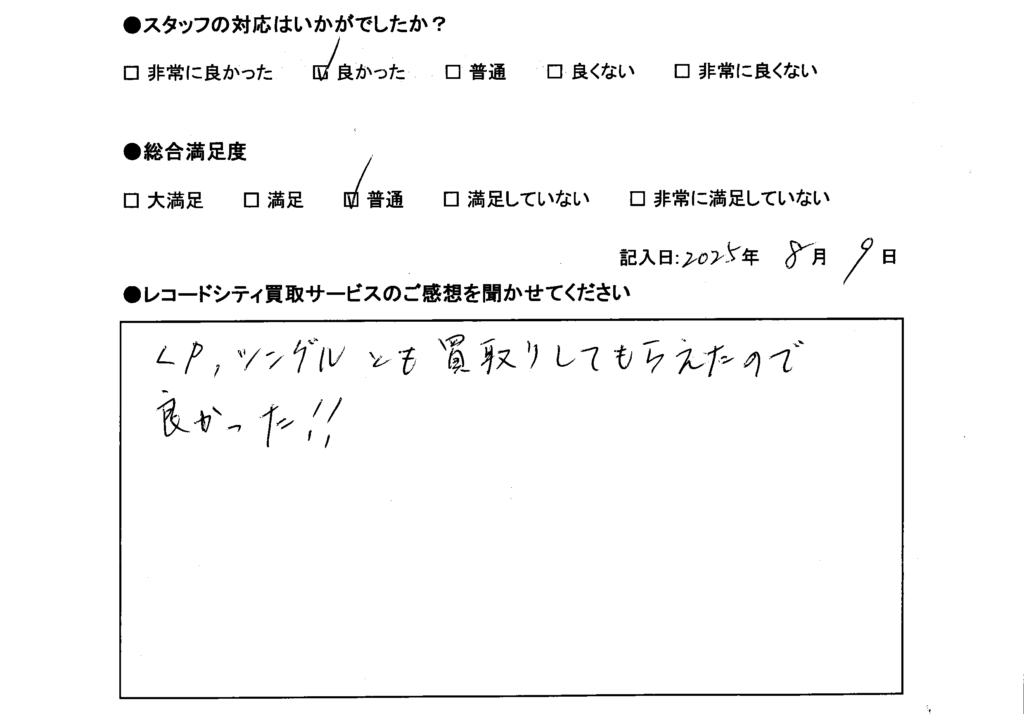 ●スタッフの対応はいかがでしたか？
□ 非常に良かった ☑ 良かった □ 普通 □ 良くない □ 非常に良くない
●総合満足度
□ 大満足 □ 満足 ☑ 普通 □ 満足していない □ 非常に満足していない
記入日:2025年 8月 9日
●レコードシティ買取サービスのご感想を聞かせてください
LP, シングルとも買取りしてもらえたので
良かった!!